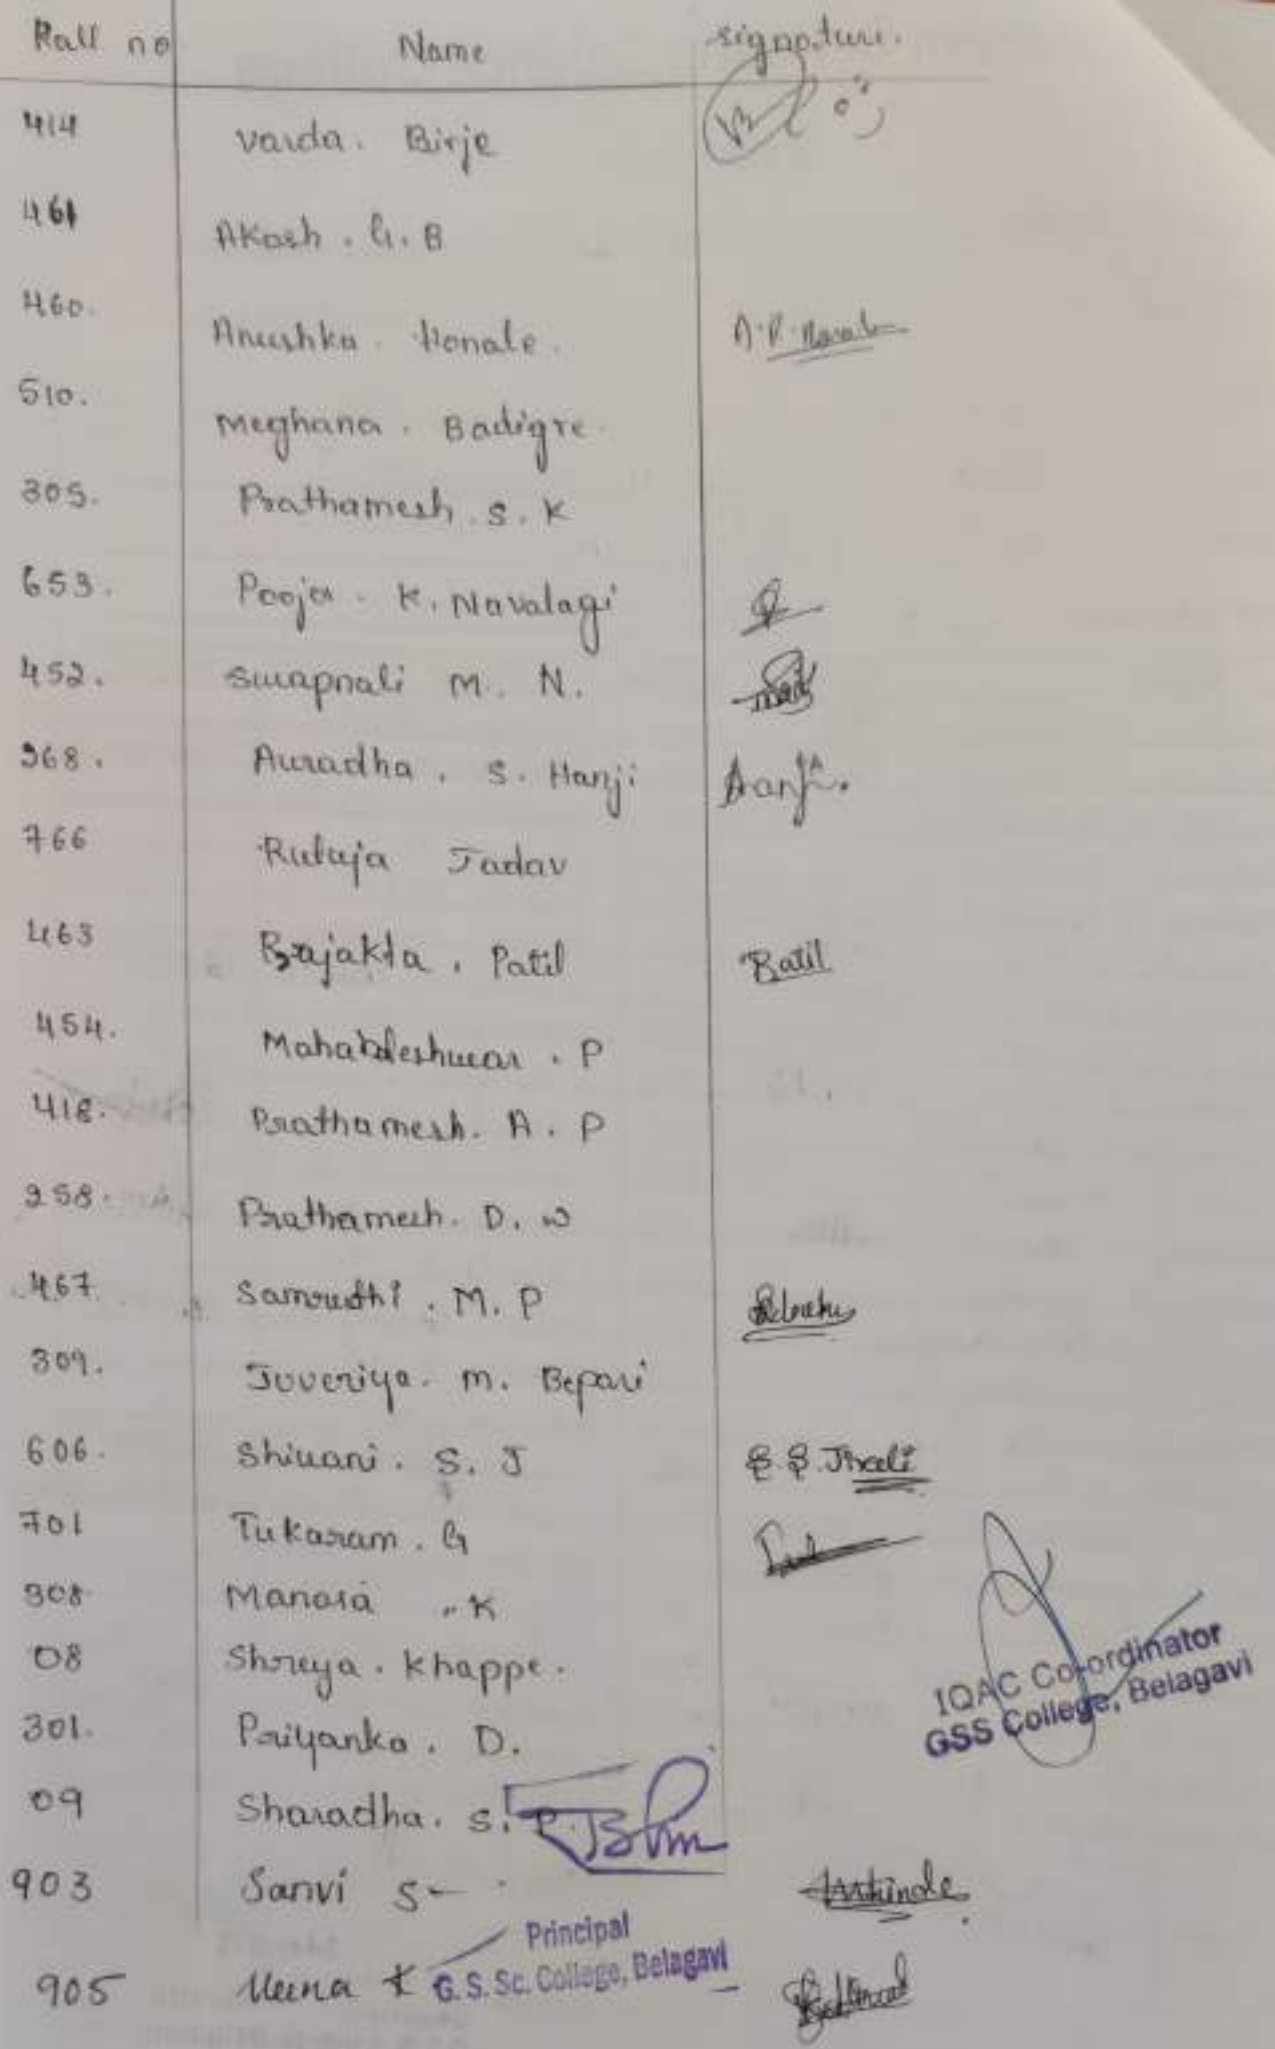 Roll no Name signature.
414 Varda. Birje
461 Akash. G. B
460. Anushka. Honale.
510. Meghana. Badigre.
305. Prathamesh. S. K
653. Pooja. K. Navalagi
452. Swapnali M. N.
368. Auradha. S. Hanji
766 Rutuja Jadav
463 Prajakta. Patil Patil
454. Mahableshwar. P
418. Prathamesh. A. P
258. Prathamesh. D. W
467 Samrudhi. M. P
309. Juveriya. M. Bepari
606. Shivani. S. J
701 Tukaram. G
308 Manasa .K
08 Shreya. Khappe.
301. Priyanka. D.
IQAC Co-ordinator
GSS College, Belagavi
09 Sharadha. S. P.
903 Sanvi S
Principal
905 Meena K
G. S. Sc. College, Belagavi